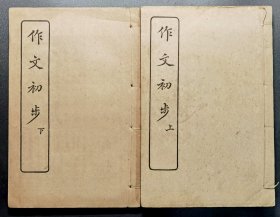 作文初步 上
作文初步 下